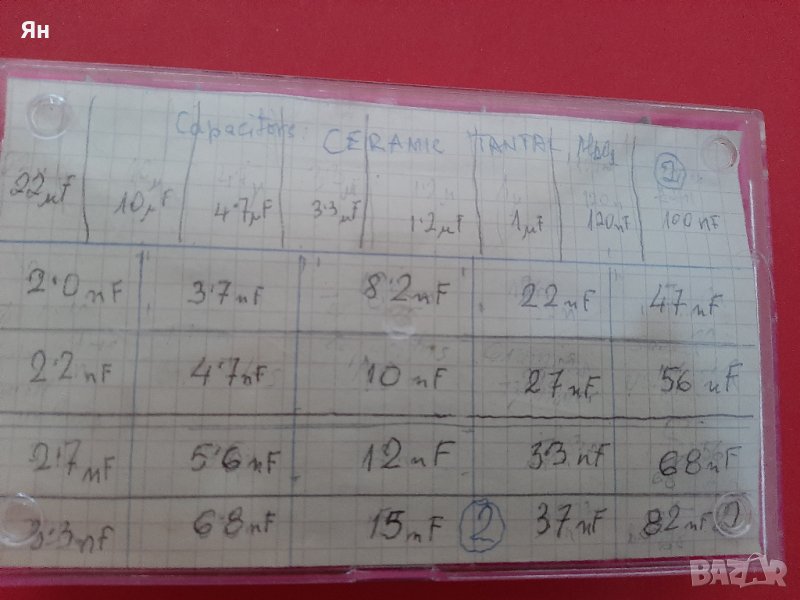 Ян
Capacitors: CERAMIC TANTAL
22µF 10µF 4.7µF 3.3µF 1.2µF 1µF 120nF 100nF
2.0nF 3.7nF 8.2nF 22nF 47nF
2.2nF 4.7nF 10nF 27nF 56nF
2.7nF 5.6nF 12nF 33nF 68nF
3.3nF 6.8nF 15nF 2 37nF 82nF
BAZAR